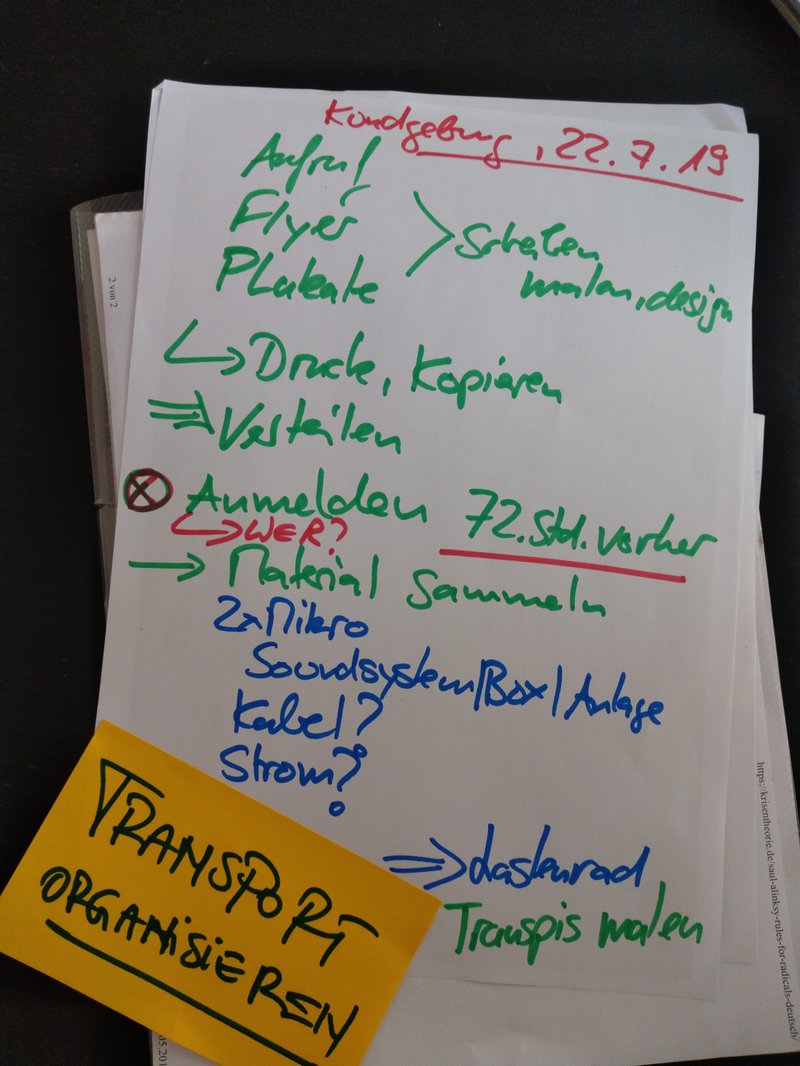 Kundgebung, 22.7.19
Aufruf
Flyer
Plakate
> Schreiben
malen, design
↳ Drucke, Kopieren
⇒ Verteilen
⊗ Anmelden 72.Std. vorher
↳ WER?
→ Material sammeln
2x Mikro
Soundsystem/Box/Anlage
Kabel?
Strom?
⇒ Lastenrad
Transpis malen
TRANSPORT
ORGANISIEREN
2 von 2
https://krisentheorie.de/saul-alinksy-rules-for-radicals-deutsch/
05.201